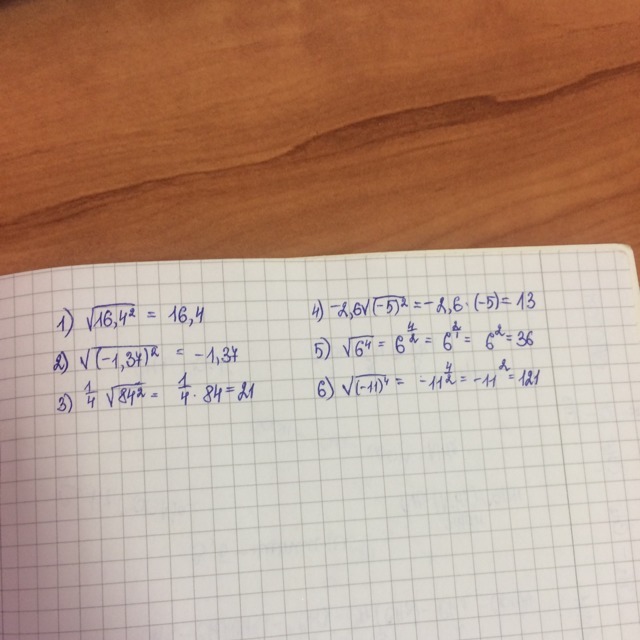 1) √16,4² = 16,4
2) √(-1,37)² = -1,37
3) 1/4 √84² = 1/4 · 84 = 21
4) -2,6√(-5)² = -2,6 · (-5) = 13
5) √6⁴ = 6^(4/2) = 6^(2/1) = 6² = 36
6) √(-11)⁴ = -11^(4/2) = -11² = 121